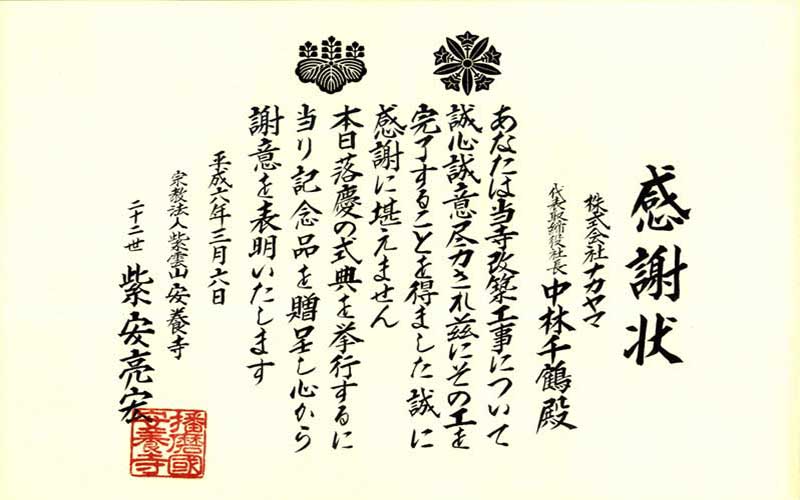 感謝状
株式会社ナカヤマ
代表取締役社長 中林千鶴殿
あなたは当寺改築工事について
誠心誠意尽力され茲にその工を
完了することを得ました誠に
感謝に堪えません
本日落慶の式典を挙行するに
当り記念品を贈呈し心から
謝意を表明いたします
平成六年三月六日
宗教法人紫雲山安養寺
二十二世 紫安亮宏
播磨國
安養寺